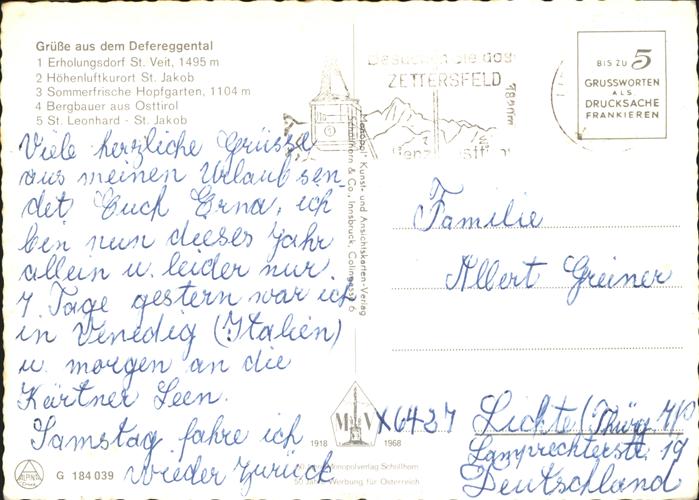 Grüße aus dem Defereggental
1 Erholungsdorf St. Veit, 1495 m
2 Höhenluftkurort St. Jakob
3 Sommerfrische Hopfgarten, 1104 m
4 Bergbauer aus Osttirol
5 St. Leonhard - St. Jakob
Viele herzliche Grüsse
aus meinen Urlaub sen-
det Euch Erna, ich
bin nun dieses Jahr
allein u. leider nur
7 Tage gestern war ich
in Venedig (Italien)
u. morgen an die
Kärtner Seen.
Samstag fahre ich
wieder zurück
G 184 039
Monopol- Kunst- und Ansichtskarten-Verlag
Schöllhorn & Co., Innsbruck, Colingasse 6
1918 MV 1968
50 Jahre Monopolverlag Schöllhorn
50 Jahre Werbung für Österreich
Besuchen Sie das
ZETTERSFELD
BIS ZU 5
GRUSSWORTEN
ALS
DRUCKSACHE
FRANKIEREN
Familie
Albert Greiner
X6427 Lichte (Thürg.
Lamprechterstr. 19
Deutschland